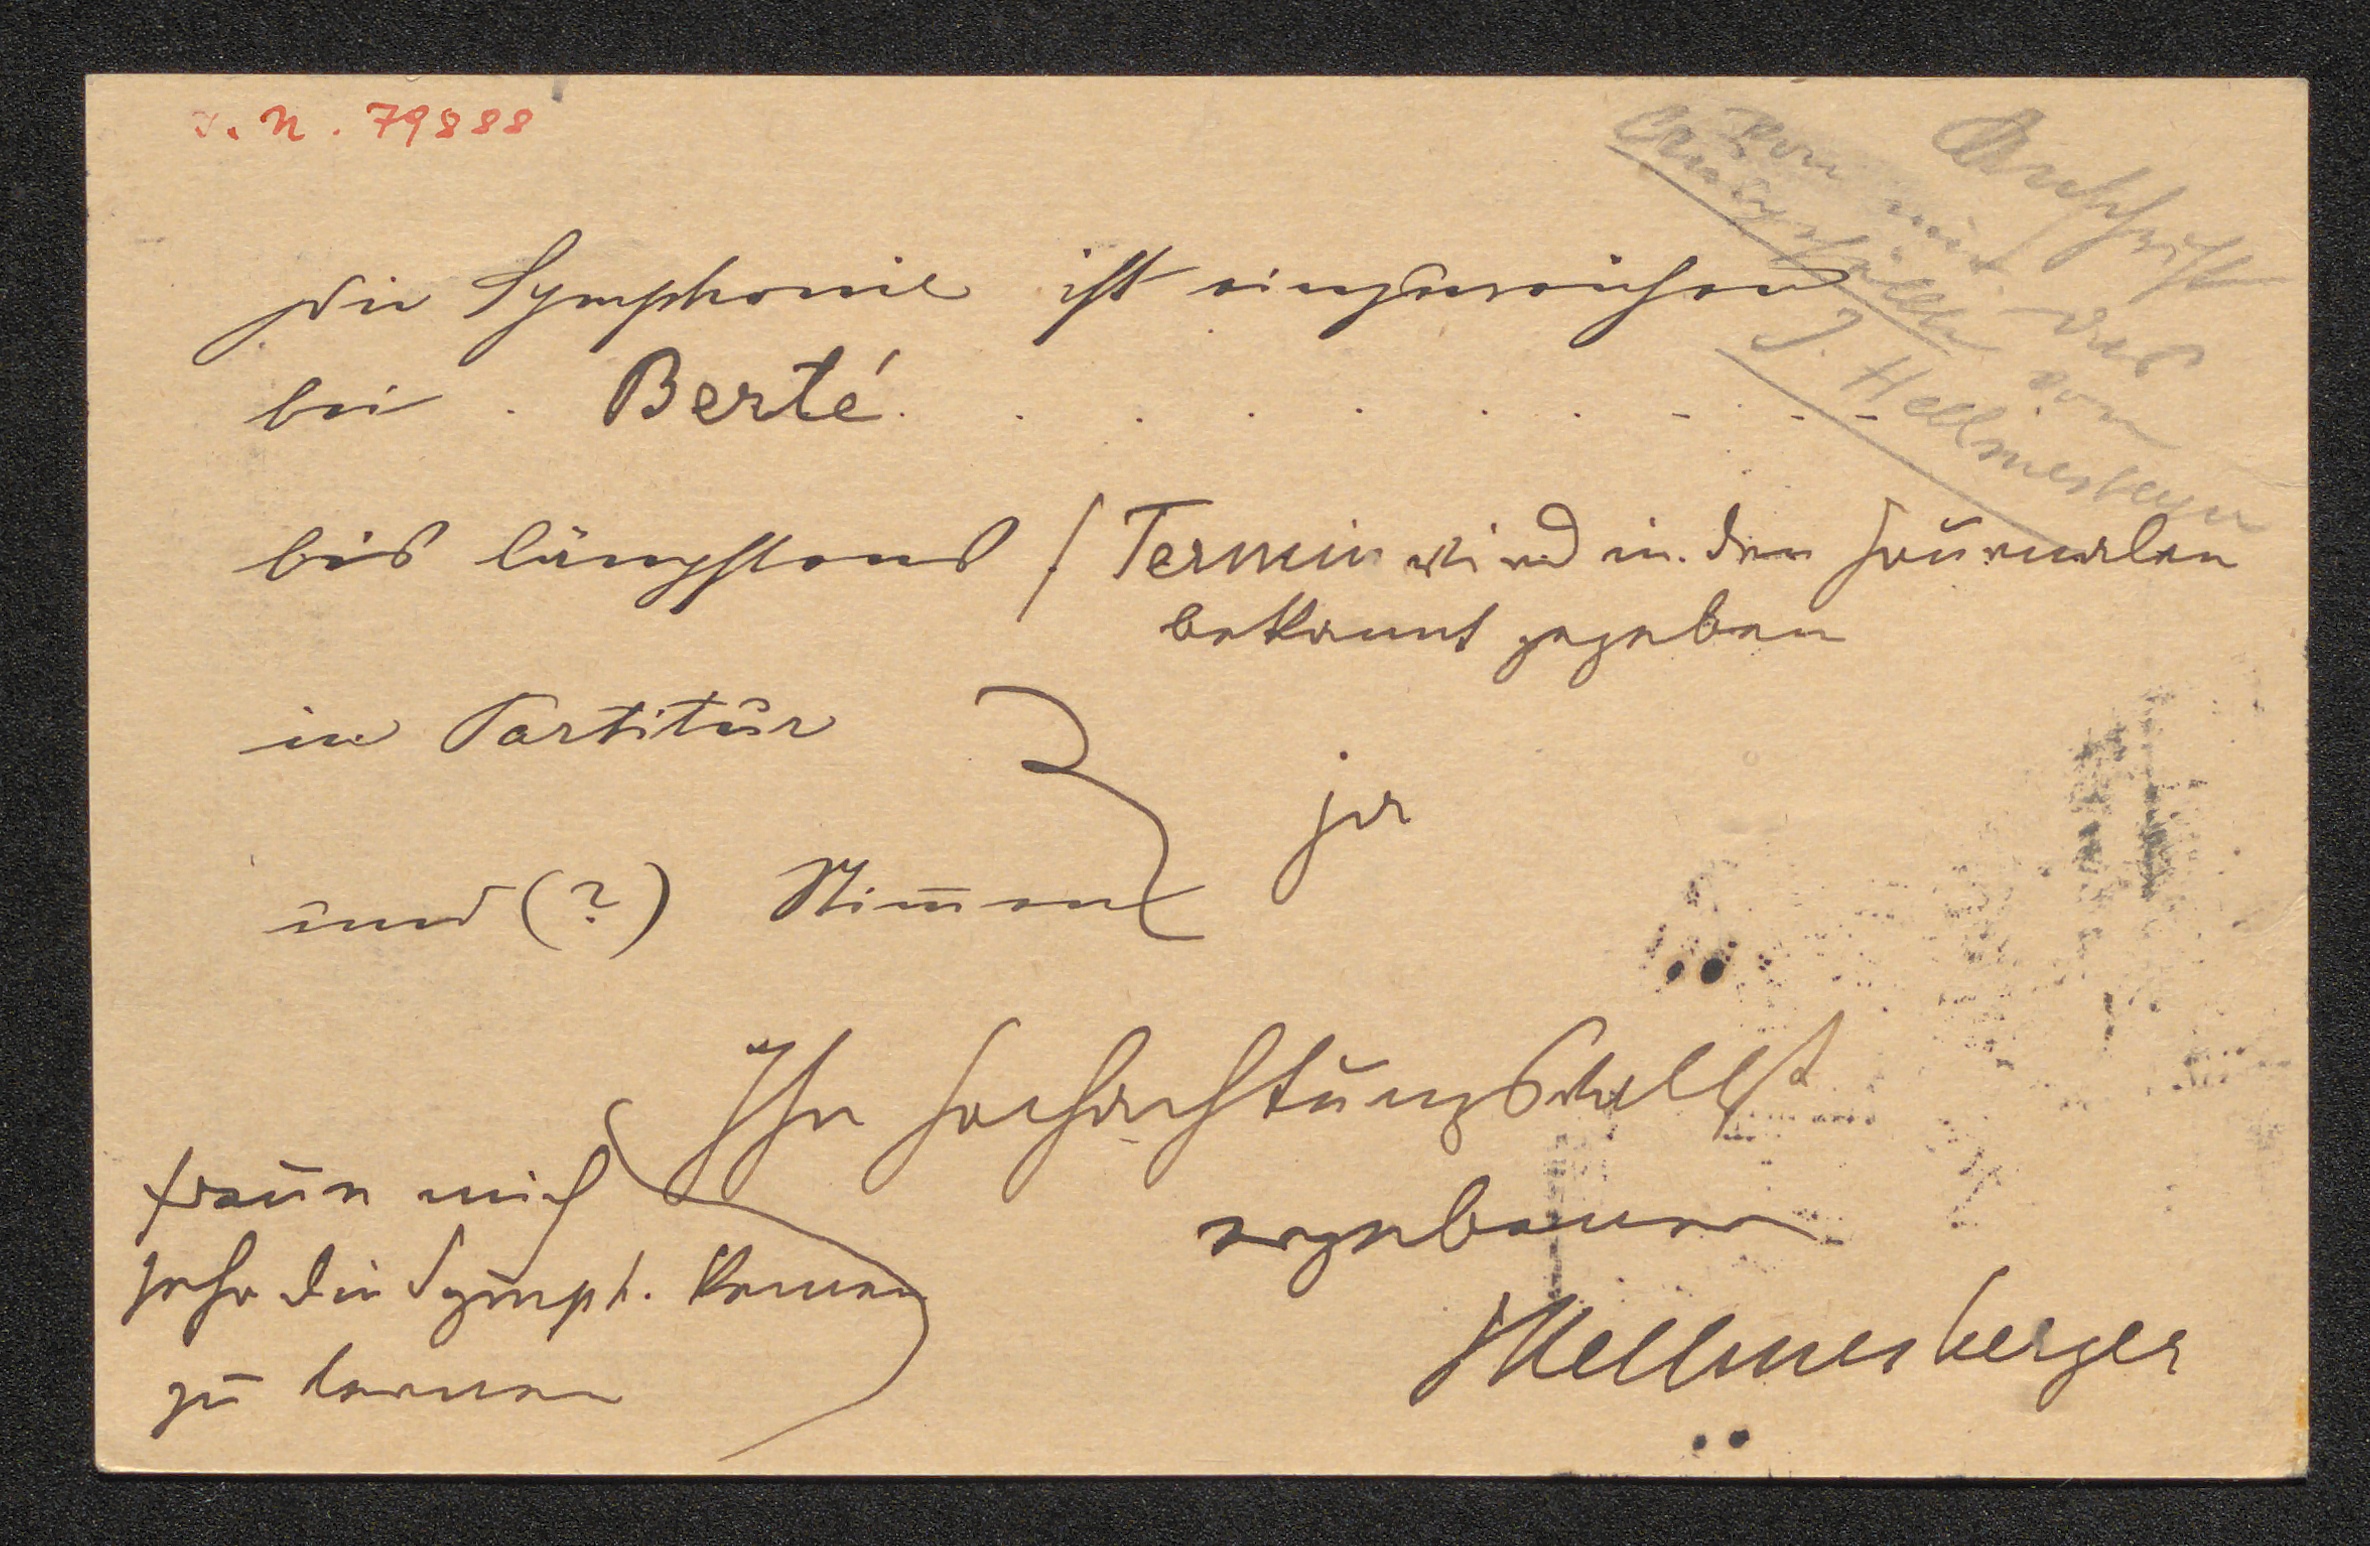 I. N. 79888
Anschrift
von mir das
Ausgefüllte von
J. Hellmesberger
die Symphonie ist einzureichen
bei . Berté . . . . . . . . . .
bis längstens / Termin wird in den Journalen
bekannt gegeben
in Partitur
ja
und (?) Stimmen
Ihr hochachtungsvollst
ergebener
Hellmesberger
freue mich
sehr die Symph. kennen
zu lernen